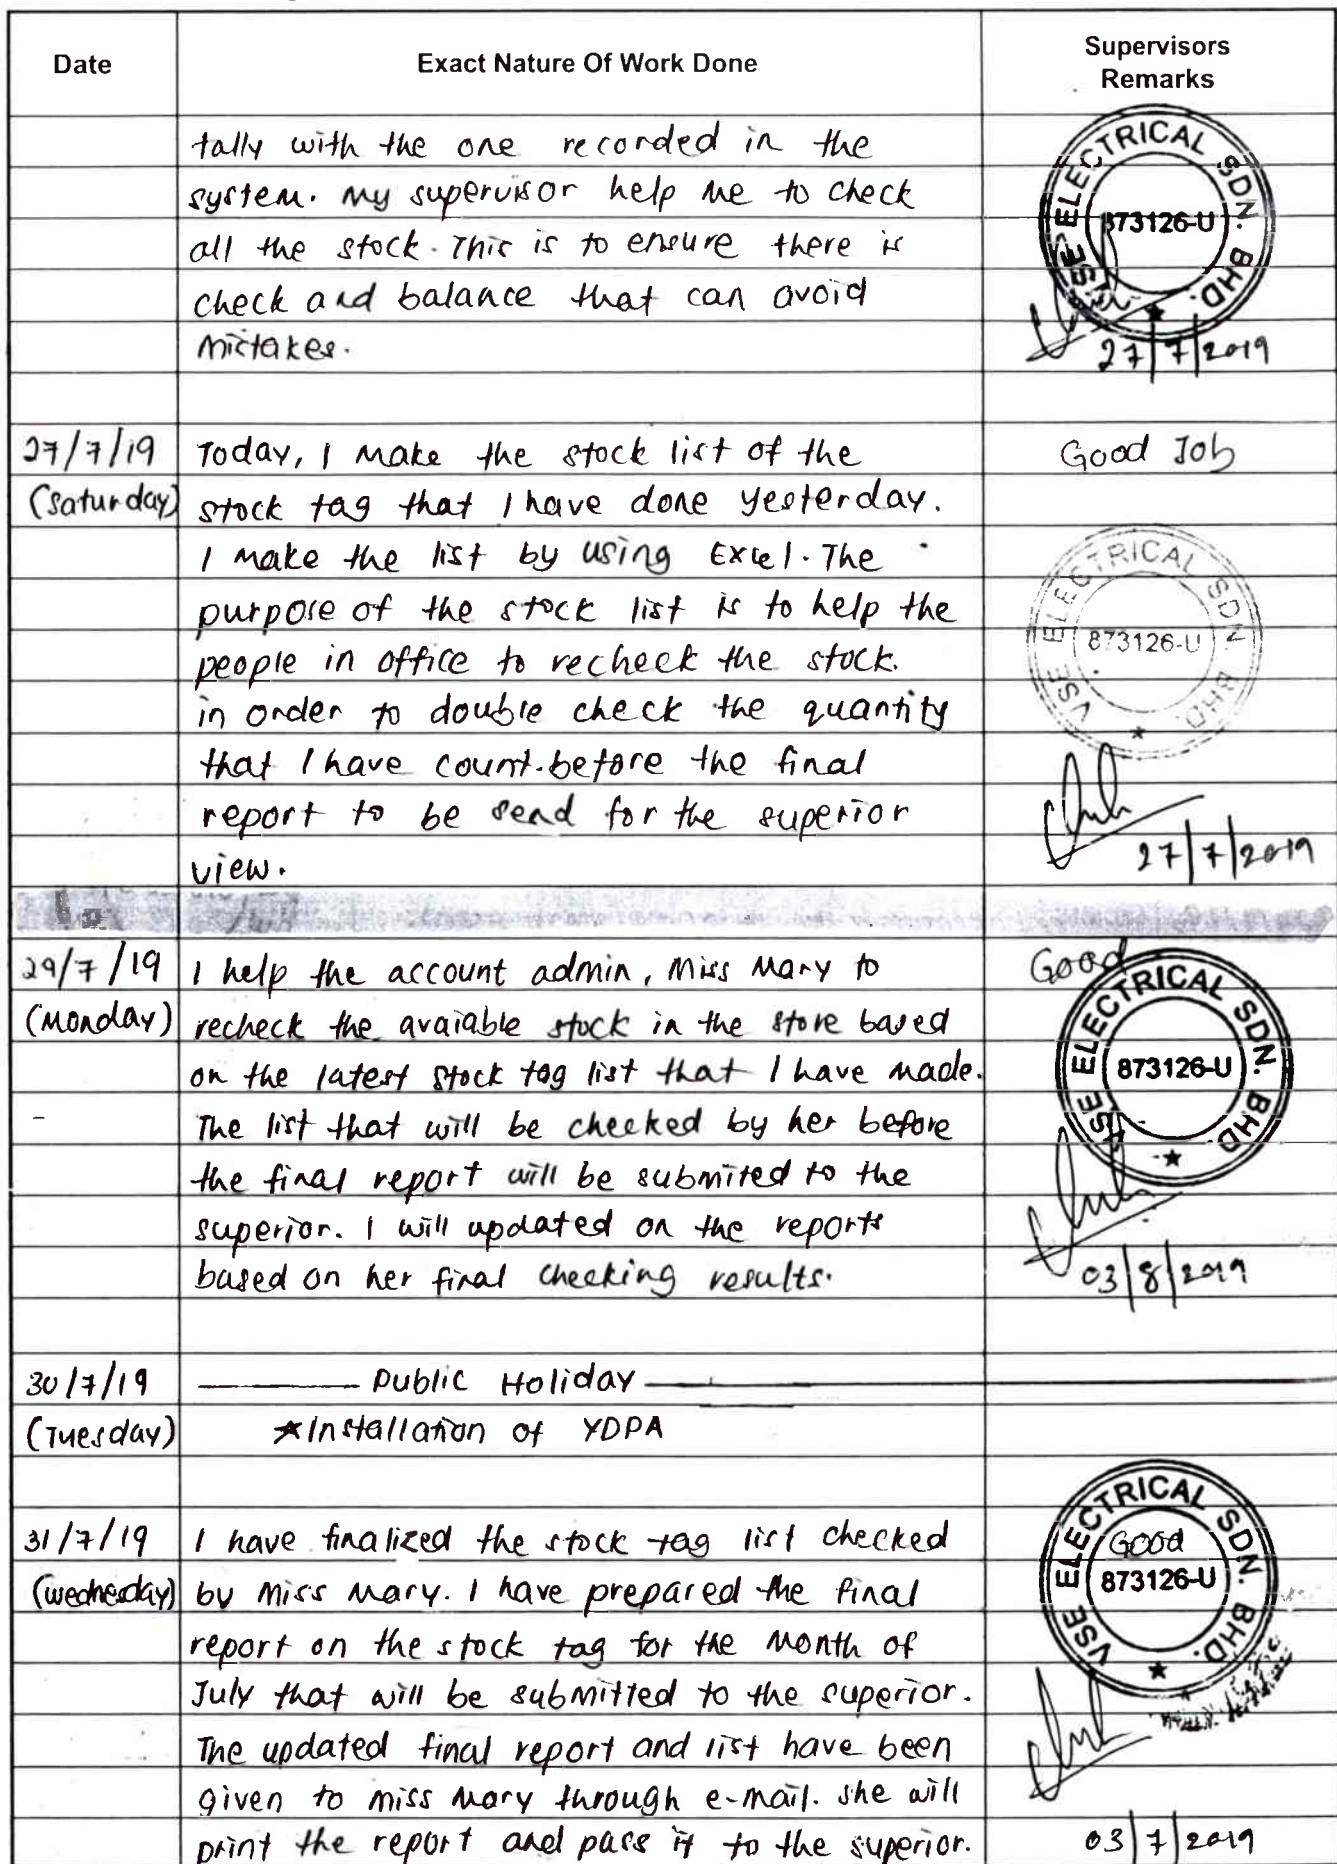 Date Exact Nature Of Work Done Supervisors
Remarks
tally with the one recorded in the
system. My supervisor help me to check
all the stock. This is to ensure there is
check and balance that can avoid
mistakes.
VSE ELECTRICAL SDN. BHD.
873126-U
27/7/2019
27/7/19 Today, I make the stock list of the Good Job
(Saturday) stock tag that I have done yesterday.
I make the list by using Excel. The
purpose of the stock list is to help the
people in office to recheck the stock.
in order to double check the quantity
that I have count.before the final
report to be send for the superior
view.
VSE ELECTRICAL SDN. BHD.
873126-U
27/7/2019
29/7/19 I help the account admin, Miss Mary to Good
(Monday) recheck the avaiable stock in the store based
on the latest stock tag list that I have made.
The list that will be checked by her before
the final report will be submited to the
superior. I will updated on the reports
based on her final checking results.
VSE ELECTRICAL SDN. BHD
873126-U
03/8/2019
30/7/19 Public Holiday
(Tuesday) *Installation of YDPA
31/7/19 I have finalized the stock tag list checked Good
(Wednesday) by Miss Mary. I have prepared the final
report on the stock tag for the month of
July that will be submitted to the superior.
The updated final report and list have been
given to miss Mary through e-mail. she will
print the report and pass it to the superior.
VSE ELECTRICAL SDN. BHD.
873126-U
03/7/2019